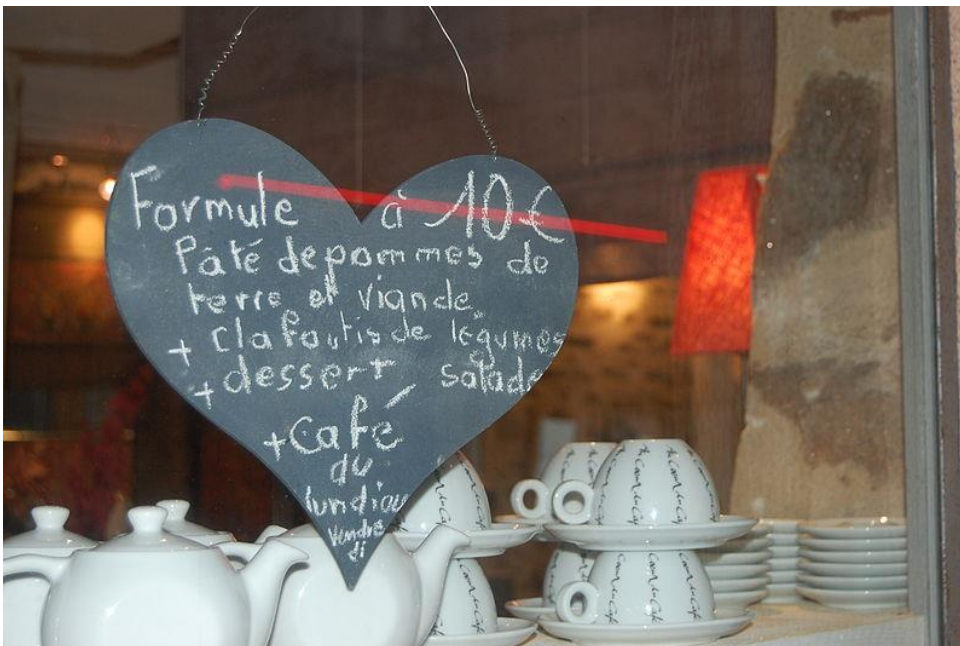 Formule à 10 €
Pâté de pommes de
terre et viande
+ clafoutis de légumes
+ dessert salade
+ Café
du
lundi au
vendre
di